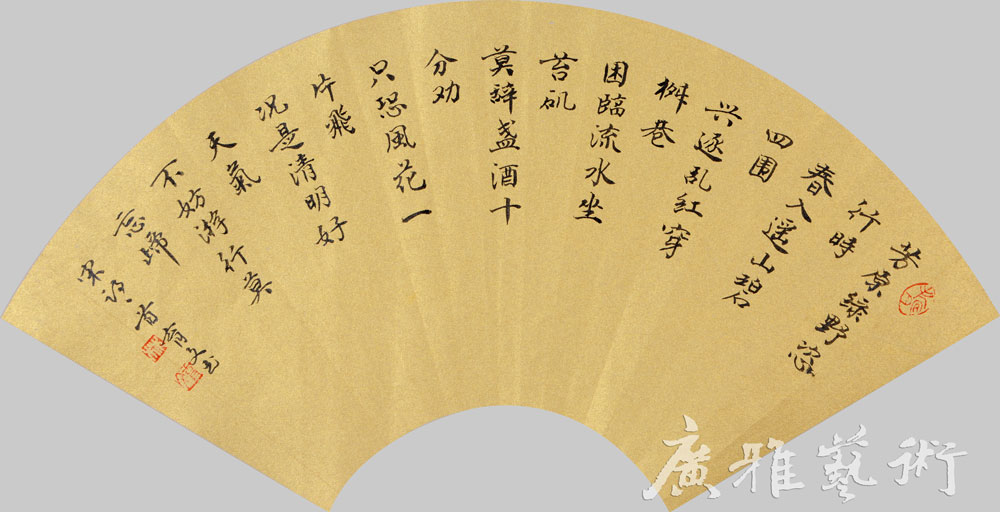 芳原绿野恣
行時
春入遥山碧
四围
兴逐乱红穿
桺巷
困臨流水坐
苔矶
莫辭盏酒十
分劝
只恐風花一
片飛
况是清明好
天氣
不妨游行莫
忘歸
宋詩一首 育文书
廣雅藝術